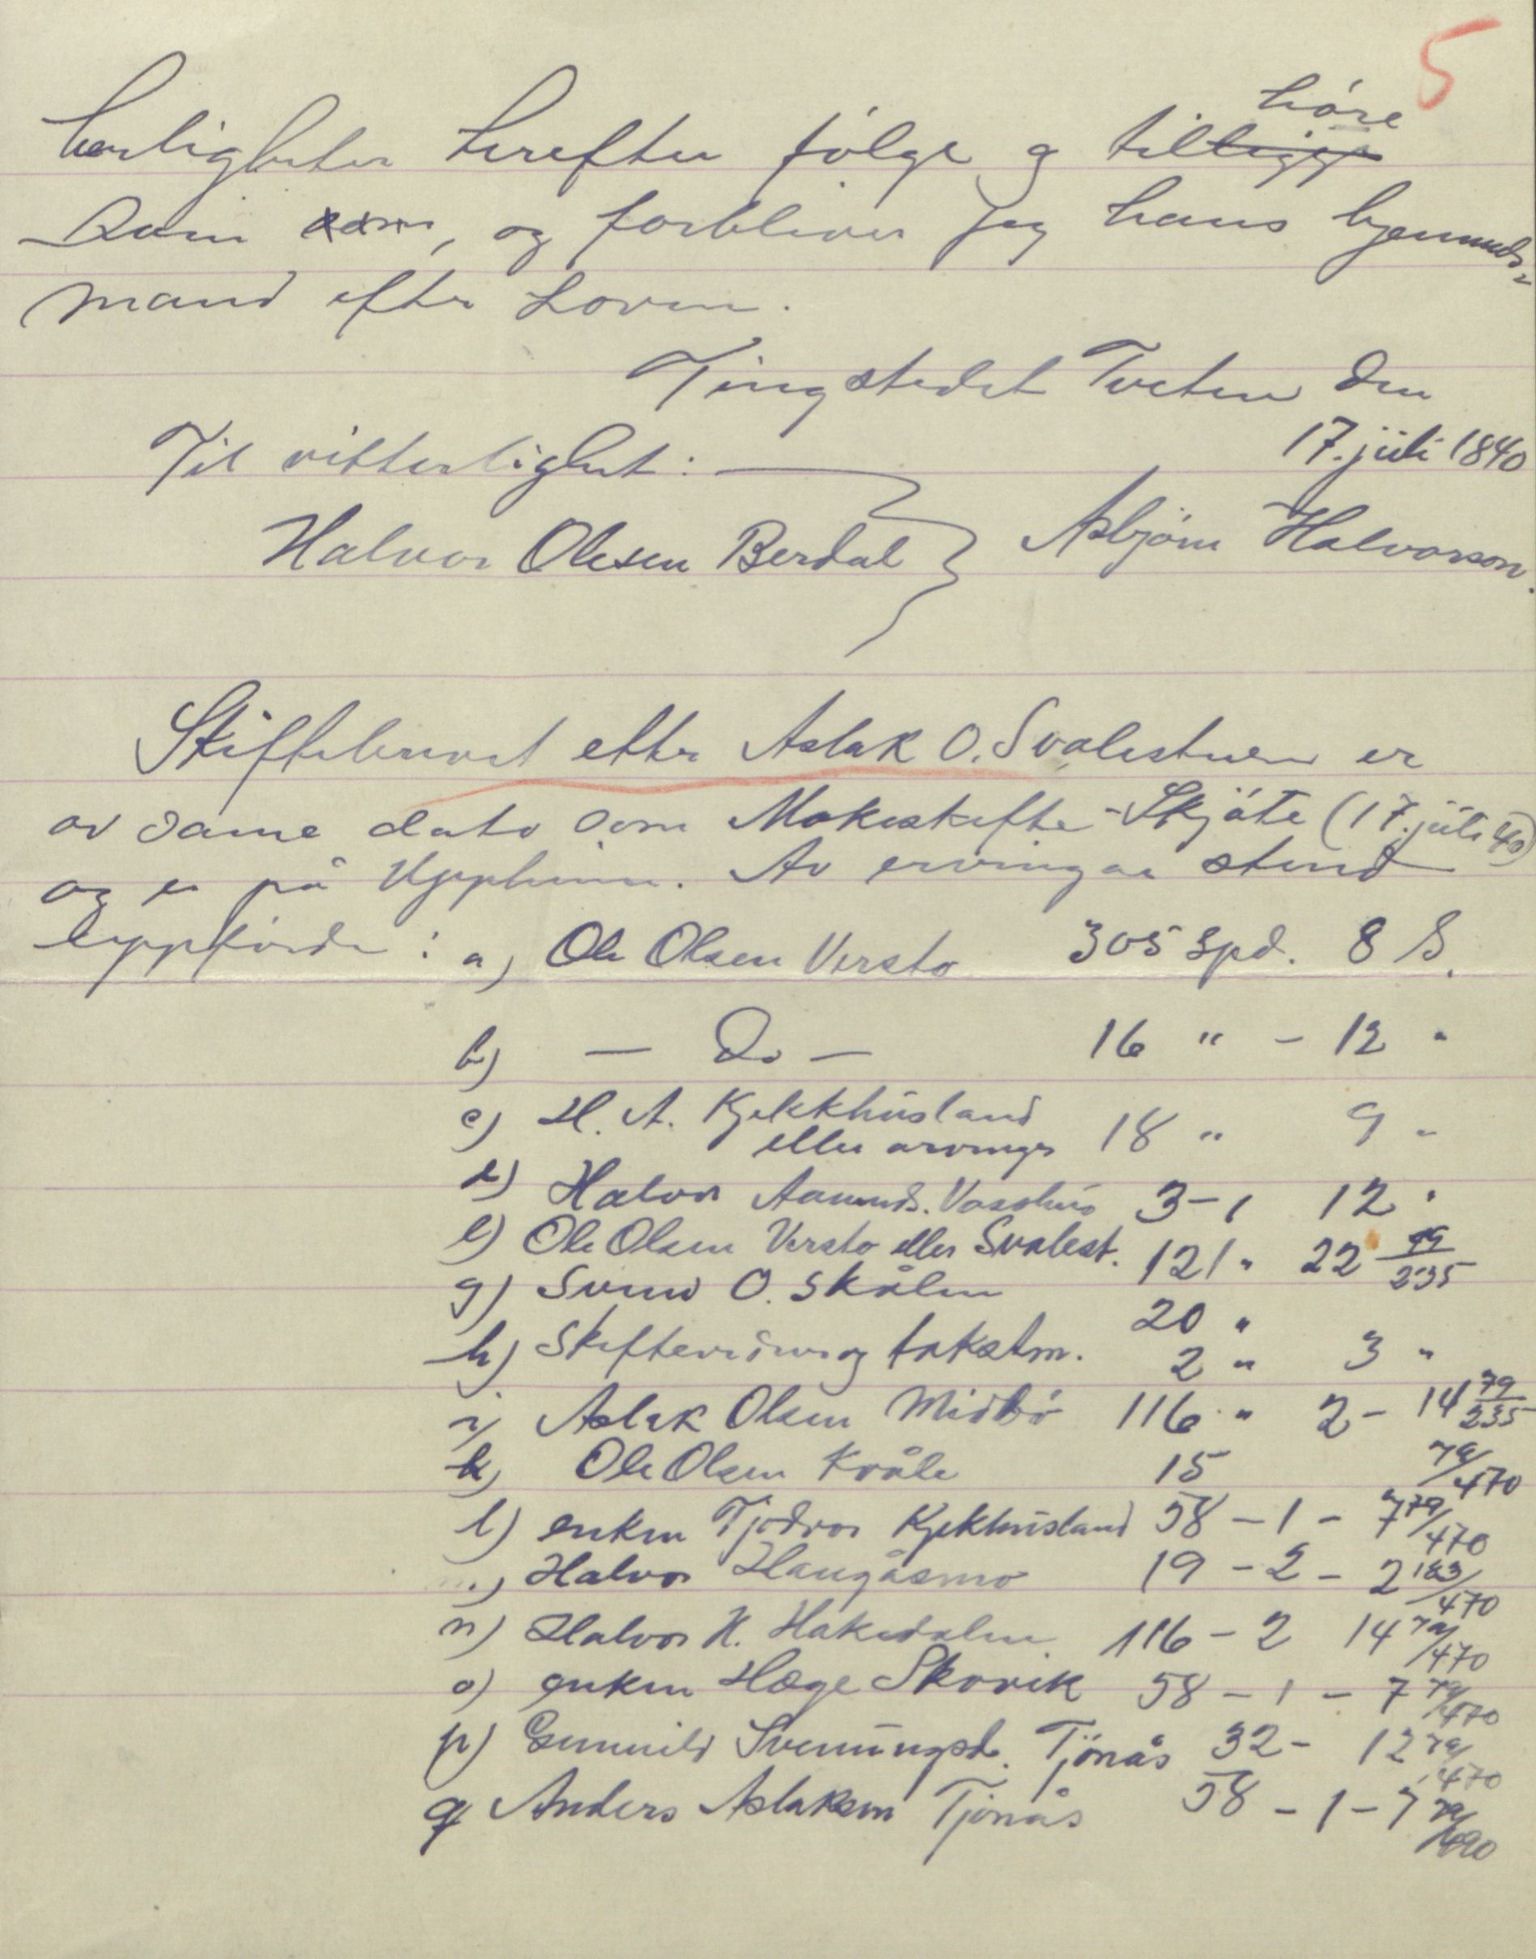 5
høre
herligheter herefter følge og tilligge
som, og forbliver jeg hans hjemmels-
mand efter Loven.
Tingstedet Tveten den
17. juli 1840
Til vitterlighet:
Halvor Olesen Berdal } Asbjørn Halvorson.
Skiftebrevet etter Aslak O. Svalestuen er
av same dato som Mokeskifte-Skjøte (17. juli 40)
og er på Uppheim. Av ervingar stend
uppførde: a) Ole Olsen Versto 305 Spd. 8 S.
b) — Do — 16 " - 12 "
c) H. A. Kjekkhusland
eller arvinger 18 " 9 "
d) Halvor Aamunds. Vaashus 3 - 1 12 "
e) Ole Olsen Versto eller Svalest. 121 " 22 99/235
g) Svend O. Skålen 20 "
h) Skifte og takstm. 2 " 3 "
i) Aslak Olsen Midbø 116 " 2 - 14 79/235
k) Ole Olsen Kvåle 15 79/470
l) enken Tjodvor Kjekhusland 58 - 1 - 7 79/470
Halvor Haugåsmo 19 - 2 - 2 183/470
n) Halvor H. Hakedalen 116 - 2 14 79/470
o) enken Hæge Skovik 58 - 1 - 7 79/470
p) Gunnild Svenungsd. Tjönås 32 - 12 79/470
q Anders Aslaksen Tjönås 58 - 1 - 7 79/490